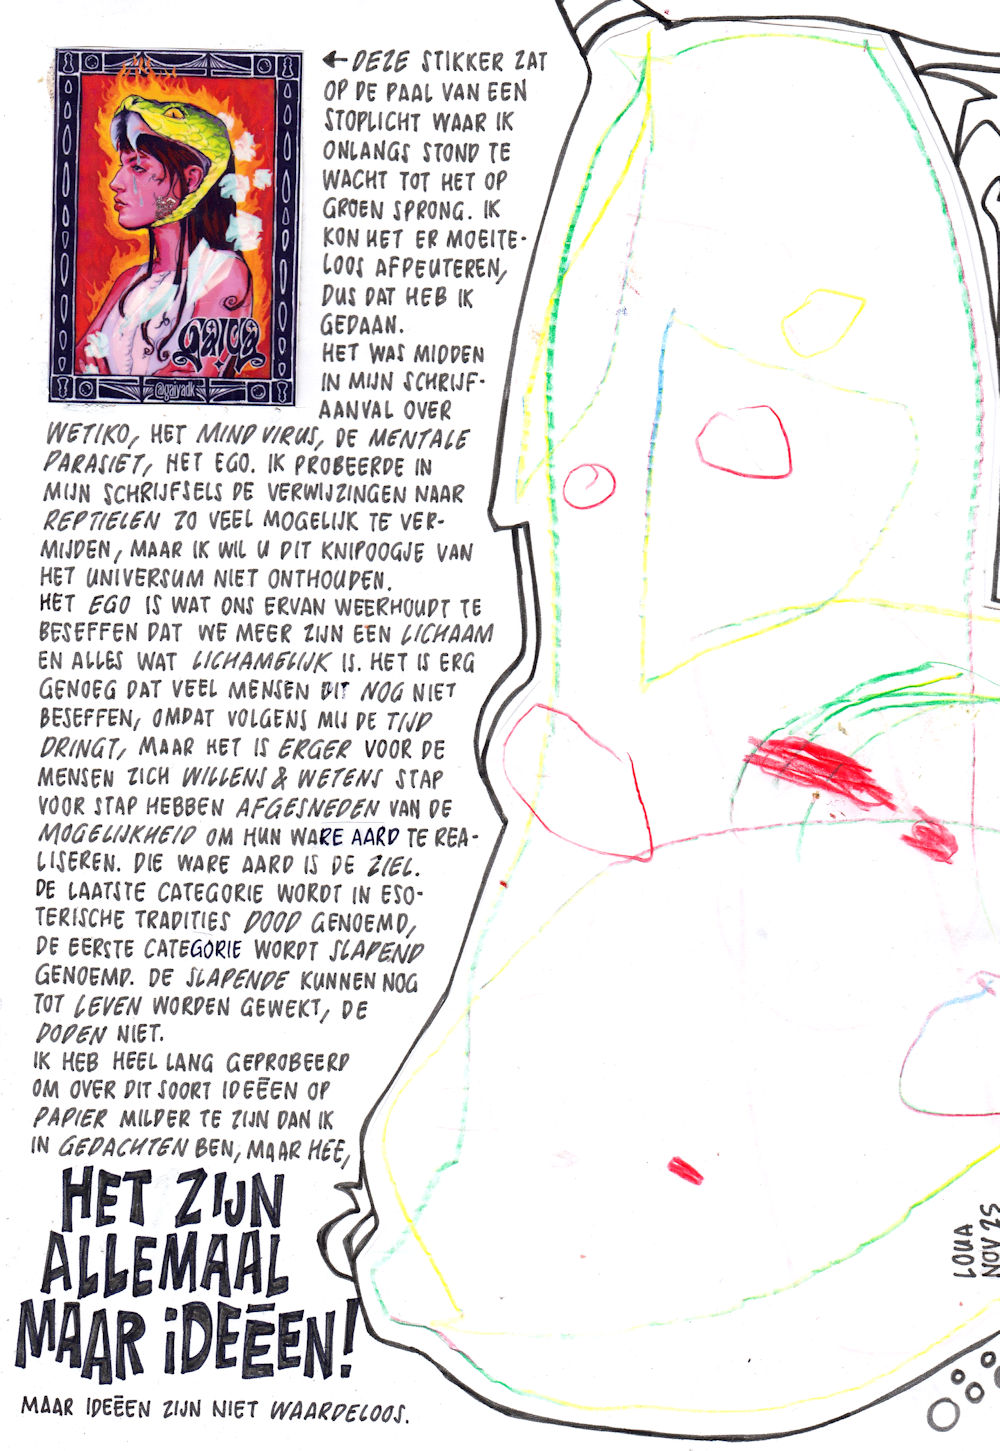 ←DEZE STIKKER ZAT
OP DE PAAL VAN EEN
STOPLICHT WAAR IK
ONLANGS STOND TE
WACHT TOT HET OP
GROEN SPRONG. IK
KON HET ER MOEITE-
LOOS AFPEUTEREN,
DUS DAT HEB IK
GEDAAN.
HET WAS MIDDEN
IN MIJN SCHRIJF-
AANVAL OVER
WETIKO, HET MIND VIRUS, DE MENTALE
PARASIET, HET EGO. IK PROBEERDE IN
MIJN SCHRIJFSELS DE VERWIJZINGEN NAAR
REPTIELEN ZO VEEL MOGELIJK TE VER-
MIJDEN, MAAR IK WIL U DIT KNIPOOGJE VAN
HET UNIVERSUM NIET ONTHOUDEN.
HET EGO IS WAT ONS ERVAN WEERHOUDT TE
BESEFFEN DAT WE MEER ZIJN EEN LICHAAM
EN ALLES WAT LICHAMELIJK IS. HET IS ERG
GENOEG DAT VEEL MENSEN DIT NOG NIET
BESEFFEN, OMDAT VOLGENS MIJ DE TIJD
DRINGT, MAAR HET IS ERGER VOOR DE
MENSEN ZICH WILLENS & WETENS STAP
VOOR STAP HEBBEN AFGESNEDEN VAN DE
MOGELIJKHEID OM HUN WARE AARD TE REA-
LISEREN. DIE WARE AARD IS DE ZIEL.
DE LAATSTE CATEGORIE WORDT IN ESO-
TERISCHE TRADITIES DOOD GENOEMD,
DE EERSTE CATEGORIE WORDT SLAPEND
GENOEMD. DE SLAPENDE KUNNEN NOG
TOT LEVEN WORDEN GEWEKT, DE
DODEN NIET.
IK HEB HEEL LANG GEPROBEERD
OM OVER DIT SOORT IDEËEN OP
PAPIER MILDER TE ZIJN DAN IK
IN GEDACHTEN BEN, MAAR HEE,
HET ZIJN
ALLEMAAL
MAAR iDEËEN!
MAAR IDEËEN ZIJN NIET WAARDELOOS.
Gaiya
@gaiyadk
LOUA
NOV 25